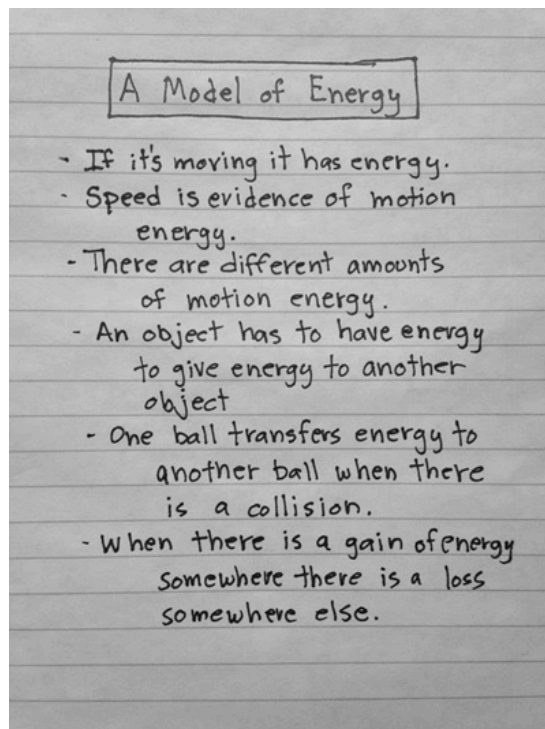 A Model of Energy
- If it's moving it has energy.
- Speed is evidence of motion
energy.
- There are different amounts
of motion energy.
- An object has to have energy
to give energy to another
object
- One ball transfers energy to
another ball when there
is a collision.
- When there is a gain of energy
somewhere there is a loss
somewhere else.